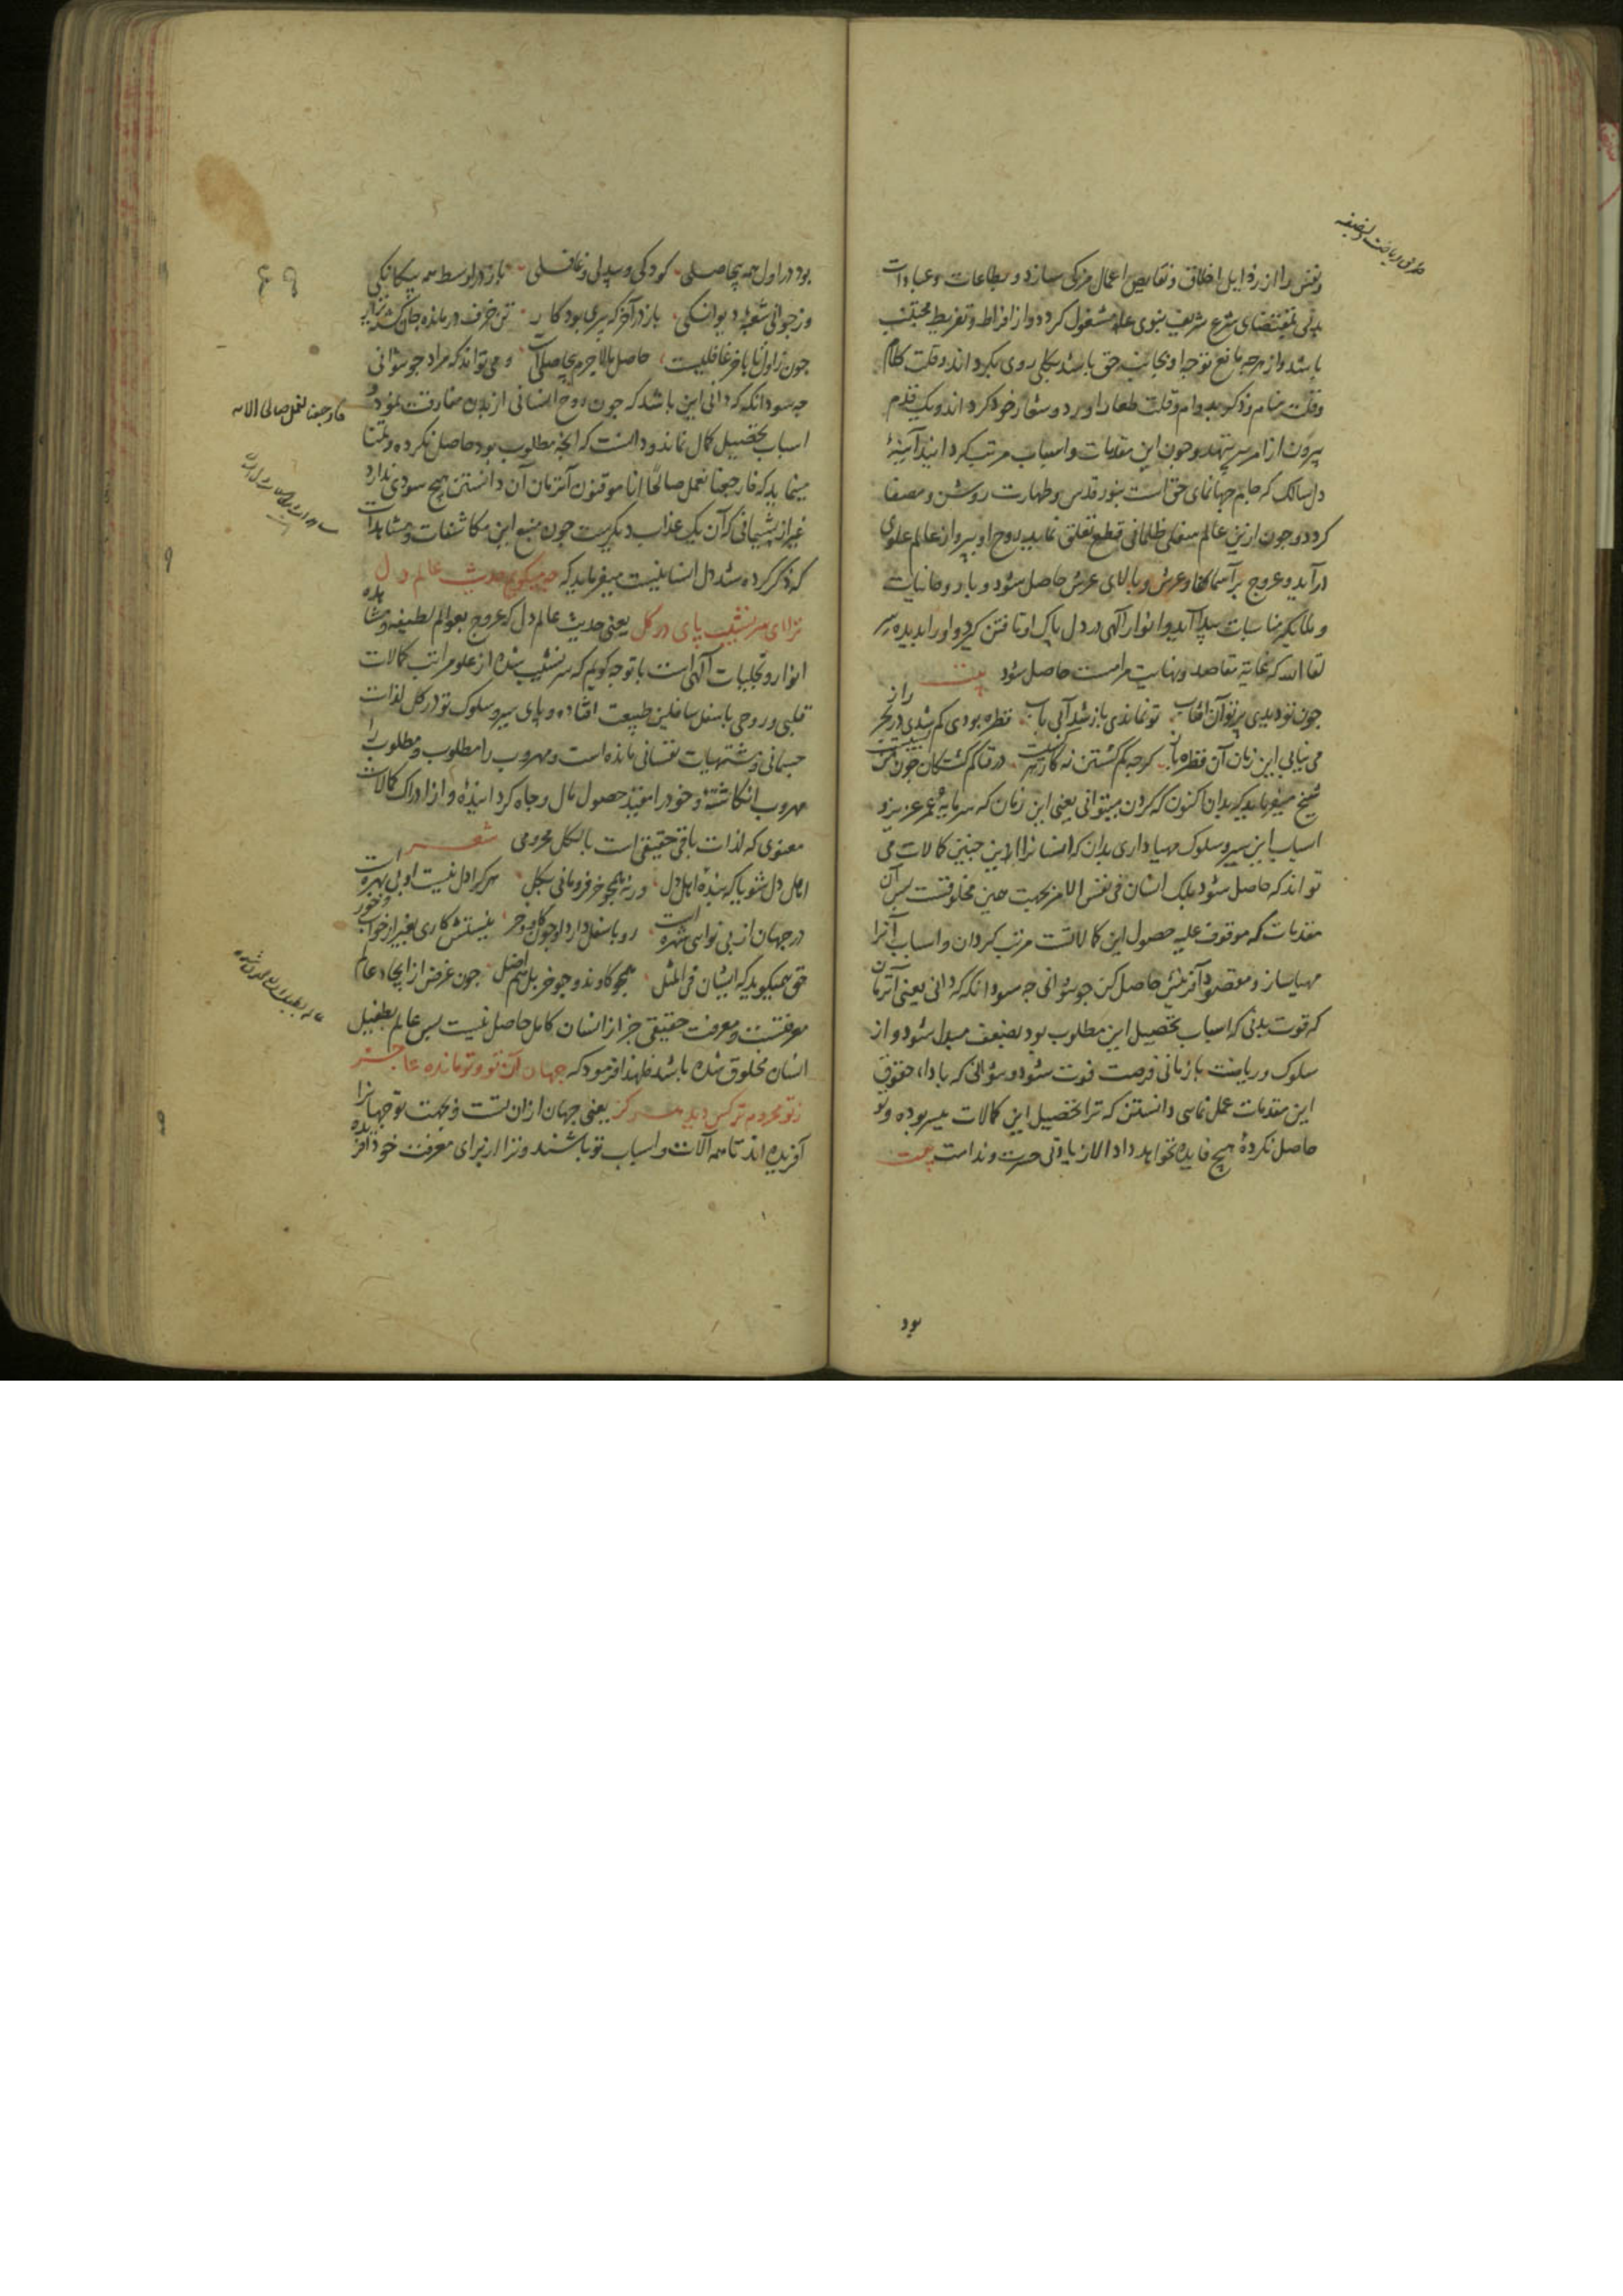 طریق ریاضت و تصفیه
و نفس را از رذایل اخلاق و نقایص اعمال مزکی سازد و بطاعات و عبادات
بدنی بمقتضای شرع شریف نبوی علم مشغول کردد و از افراط و تفریط مجتنب
باشد و از هرچه مانع توجه او بجانب حق باشد بکلی روی بکرداند و قلت کلام
و قلت منام و ذکر بدوام و قلت طعام را ورد و شعار خود کرداند و یک قدم
بیرون از امر پیر ننهد و چون این مقدمات و اسباب مرتب کردانید آیینهٔ
دل سالک که جام جهانمای حق است بنور قدس و طهارت روشن و مصفا
کردد و چون ازین عالم سفلی ظلمانی قطع تعلق نماید روح او بپرواز عالم علوی
درآید و عروج بر آسمانها و عرش و بالای عرش حاصل شود و با روحانیات
و ملایکه مناسبات پیدا آید و انوار الهی در دل پاک او تافتن کیرد و او را بدیده سر
لقاء الله که غایة مقاصد و نهایت مرامست حاصل شود بیت
چون تو دیدی پرتو آن آفتاب تو نماندی باز شد آبی بآب قطره بودی کم شدی در بحر راز
می نیابی این زمان آن قطره باز کرچه کم کشتن نه کار هر کسیست در فنا کم کشتکان چون من بسیست
شیخ میفرماید که بدان اکنون که کردن میتوانی یعنی این زمان که سرمایهٔ عمر عزیز و
اسباب این سیر و سلوک مهیا داری بدان که انسانرا این چنین کمالات می
تواند که حاصل شود بلک انسان فی نفس الامر بجهت همین مخلوقست پس آن
مقدمات که موقوف علیه حصول این کمالاتست مرتب کردان و اسباب آنرا
مهیا ساز و مقصود آفرینش حاصل کن چو نتوانی چه سود آنکه که دانی یعنی آنزمان
که قوت بدنی که اسباب تحصیل این مطلوب بود بضعف مبدل شود و از
سلوک و ریاضت بازمانی فرصت فوت شود و نتوانی که بادای حقوق
این مقدمات عمل نمایی دانستن که ترا تحصیل این کمالات میسر بوده و تو
حاصل نکردهٔ هیچ فایده نخواهد داد الا زیادتی حسرت و ندامت بیت
بود
بود در اول همه بیحاصلی کودکی و بیدلی و غافلی باز در اوسط همه بیکانکی
وز جوانی شعبهٔ دیوانکی باز در آخر که پیری بود کار تن خرف درمانده جان کشته نزار
چون ز اول تا بآخر غافلیست حاصل ما لاجرم بیحاصلیست و می تواند که مراد چو نتوانی
چه سود آنکه که دانی این باشد که چون روح انسانی از بدن مفارقت نمود و
اسباب تحصیل کمال نماند و دانست که آنچه مطلوب بود حاصل نکرده و تمنا
مینماید که فارجعنا نعمل صالحا انا موقنون آنزمان آن دانستن هیچ سودی ندارد
غیر از پشیمانی که آن یک عذاب دیکرست چون منبع این مکاشفات و مشاهدات
که ذکر کرده شد دل انسانیست میفرماید که چه میکویم حدیث عالم دل
ترا ای سرنشیب پای در کل یعنی حدیث عالم دل که عروج بعوالم لطیفه و مشاهده
انوار و تجلیات الهی است با تو چه کویم که سرنشیب شده از علو مراتب کمالات
قلبی و روحی باسفل سافلین طبیعت افتاده و پای سیر و سلوک تو در کل لذات
جسمانی و مشتهیات نفسانی مانده است و مهروب را مطلوب و مطلوب را
مهروب انکاشتهٔ و خود را مقید حصول مال و جاه کردانیدهٔ و از ادراک کمالات
معنوی که لذات باقی حقیقی است بالکل محرومی شعر
اهل دل شو یا که بندهٔ اهل دل ورنه همچو خر فرومانی بکل هر کرا دل نیست او بی بهره است
در جهان از بی نوایی شهره است رو باسفل دارد او چون کاو و خر نیستش کاری بغیر از خواب و خور
حق همیکوید که ایشان فی المثل همچو کاوند و چو خر بل هم اضل چون غرض از ایجاد عالم
معرفتست و معرفت حقیقی جز از انسان کامل حاصل نیست پس عالم بطفیل
انسان مخلوق شده باشد فلهذا فرمود که جهان آن تو و تو مانده عاجز
ز تو محروم تر کس دید هرکز یعنی جهان از آن تست و بجهت تو جهانرا
آفریده اند تا همه آلات و اسباب تو باشند و ترا از برای معرفت خود آفریده
فارجعنا نعمل صالحا الایه